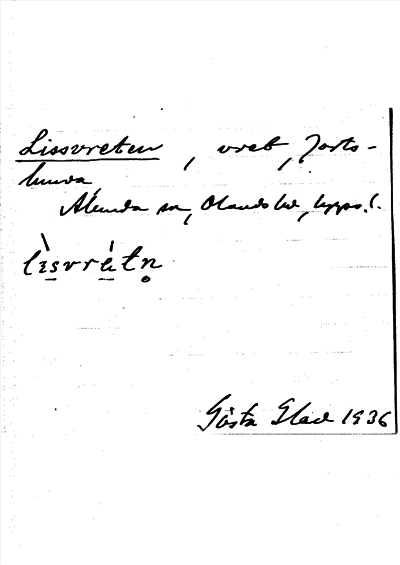 Lissvreten, vret,
lunda,
Alunda sn, Olands hd, Upps. l.
lɪ̀svrétn̥
Gösta Elad 1936